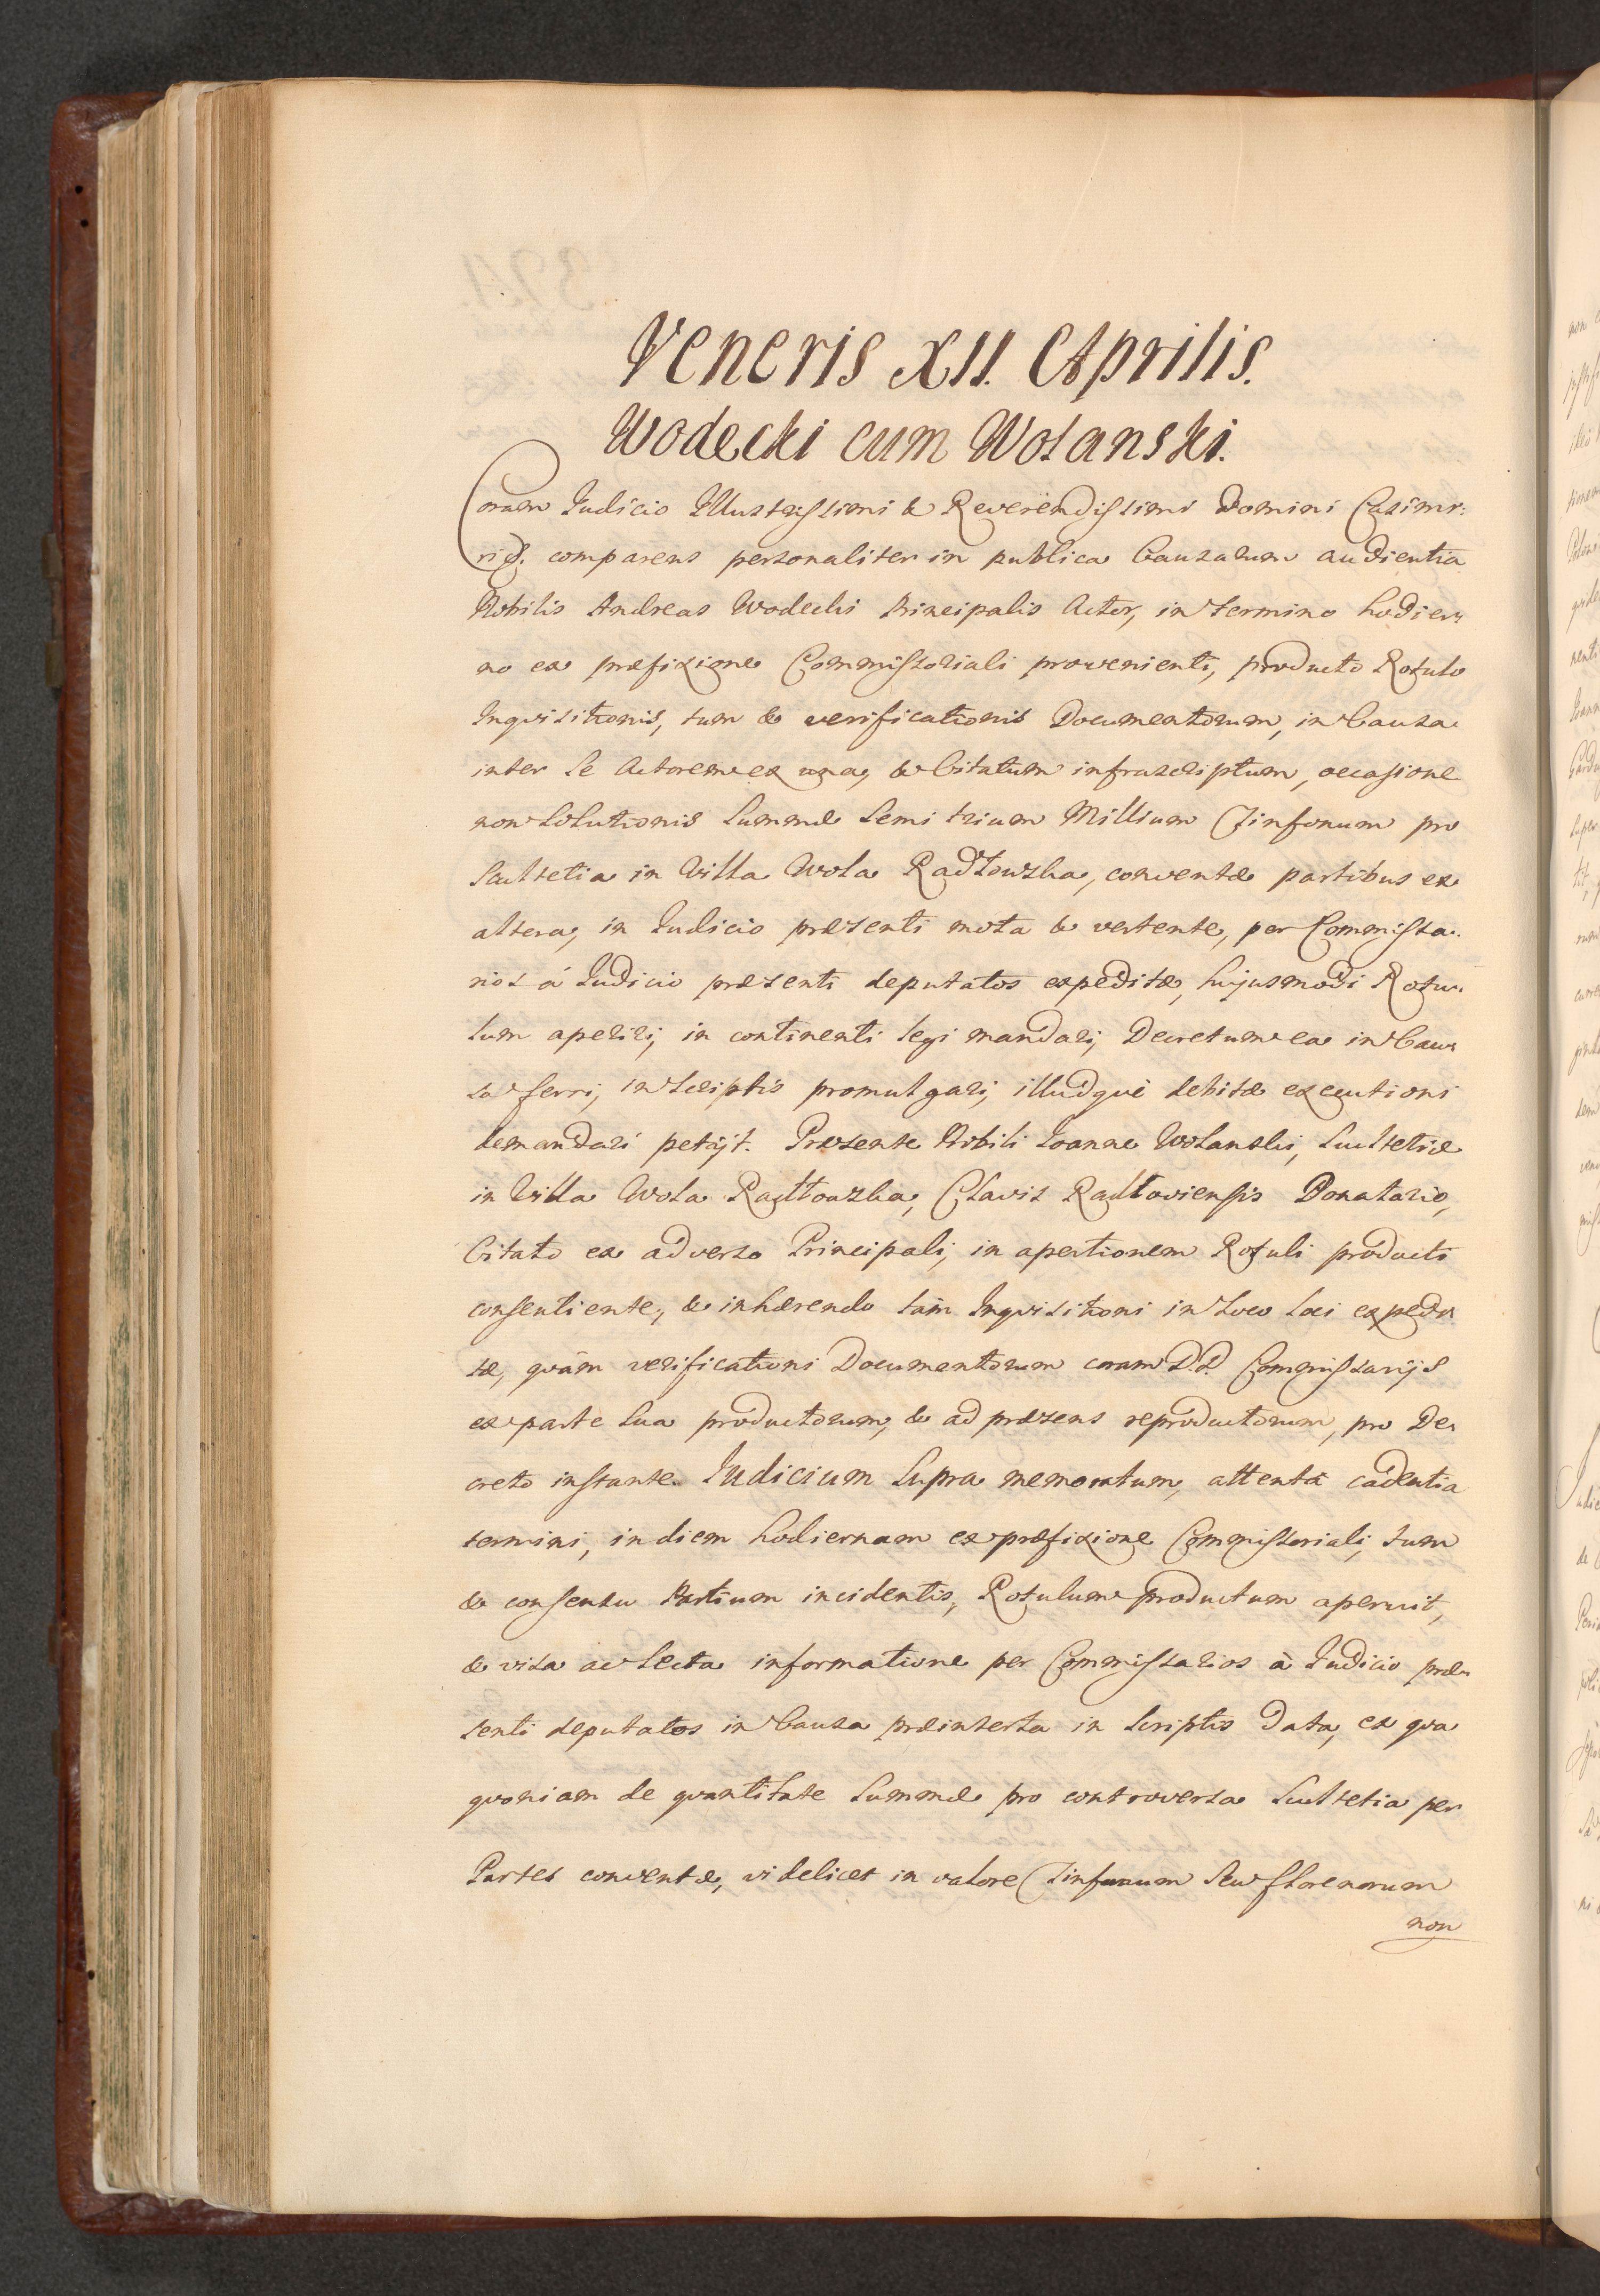 Veneris XII. Aprilis.
Wodecki cum Wolanski.
Coram Iudicio Illustrissimi & Reverendissimi Domini Casimi-
ri &. comparens personaliter in publica Causarum audientia
Nobilis Andreas Wodecki Principalis Actor, in termino hodier-
no ex præfixione Commissoriali provenienti, producto Rotulo
Inquisitionis, tum & verificationis Documentorum, in Causa
inter se Actorem ex una, & Citatum infrascriptum, occasione
non solutionis Summæ Semi trium Millium Tinfonum pro
Scultetia in Villa Wola Radłowska, conventæ partibus ex
altera, in Iudicio præsenti mota & vertente, per Commissa-
rios á Iudicio præsenti deputatos expeditæ, hujusmodi Rotu-
lum aperiri, in continenti legi mandari, Decretum ex in Cau-
sa ferri, in scriptis promulgari, illudquè debitæ executioni
demandari petijt. Præsente Nobili Ioanne Wolanski, Scultetiæ
in Villa Wola Radłowska, Clavis Radłoviensis Donatario,
Citato ex adverso Principali, in apertionem Rotuli producti
consentiente, & inhærendo tàm Inquisitioni in loco loci expedi-
tæ, quàm verificationi Documentorum coram DD. Commissarijs
ex parte sua productorum, & ad præsens reproductorum, pro De-
creto instante. Iudicium Supra memoratum, attentâ cadentia
termini, in diem hodiernam ex præfixione Commissoriali, tum
& consensu Partium incidentis, Rotulum productum aperuit,
& visa ac lecta informatione per Commissarios à Iudicio præ-
senti deputatos in Causa præinserta in scriptis data, ex qva
qvoniam de qvantitate Summæ pro controversa Scultetia per
Partes conventæ, videlicet in valore Tinfonum seu florenorum
non